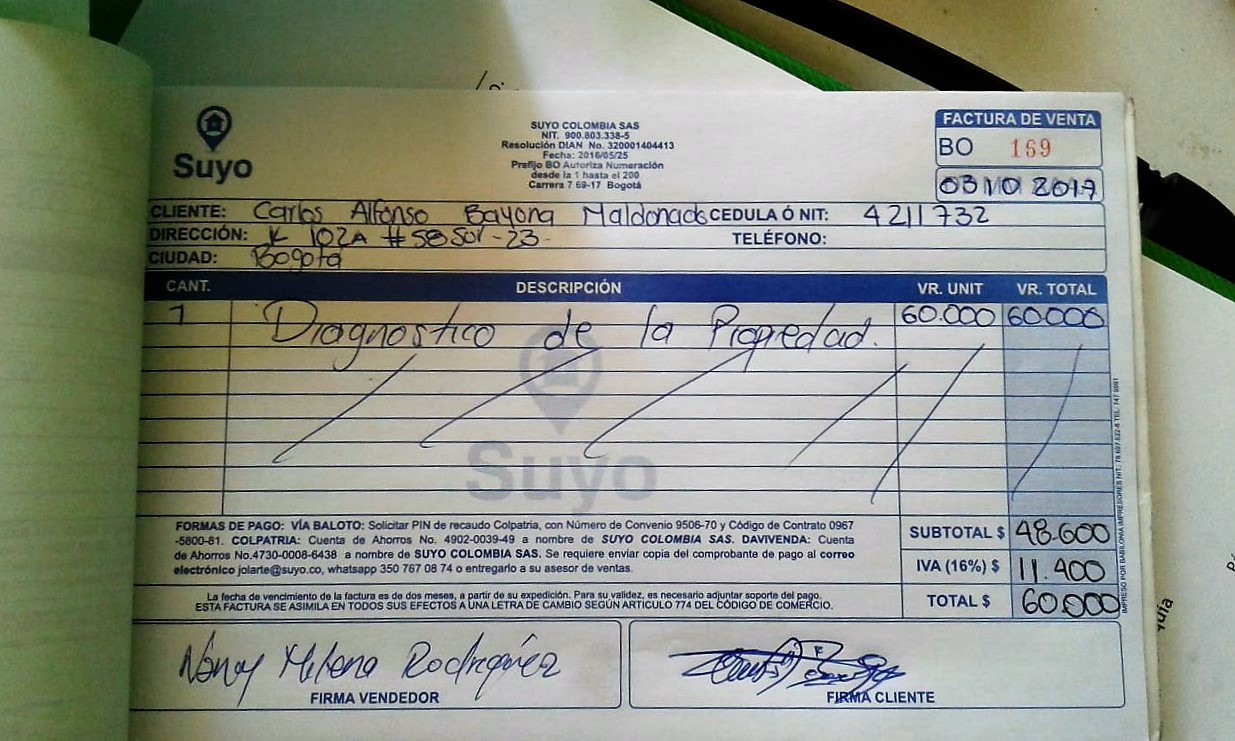 Suyo
SUYO COLOMBIA SAS
NIT. 900.803.338-5
Resolución DIAN No. 320001404413
Fecha: 2016/05/25
Prefijo BO Autoriza Numeración
desde la 1 hasta el 200
Carrera 7 69-17 Bogotá
FACTURA DE VENTA
BO 169
03 10 2017
CLIENTE: Carlos Alfonso Bayona Maldonado CEDULA Ó NIT: 4211732
DIRECCIÓN: K 102A #58 Sur-23- TELÉFONO:
CIUDAD: Bogotá
CANT. DESCRIPCIÓN VR. UNIT VR. TOTAL
1 Diagnostico de la Propiedad. 60.000 60.000
Suyo
FORMAS DE PAGO: VÍA BALOTO: Solicitar PIN de recaudo Colpatria, con Número de Convenio 9506-70 y Código de Contrato 0967
-5800-81. COLPATRIA: Cuenta de Ahorros No. 4902-0039-49 a nombre de SUYO COLOMBIA SAS. DAVIVENDA: Cuenta
de Ahorros No.4730-0008-6438 a nombre de SUYO COLOMBIA SAS. Se requiere enviar copia del comprobante de pago al correo
electrónico jolarte@suyo.co, whatsapp 350 767 08 74 o entregarlo a su asesor de ventas.
La fecha de vencimiento de la factura es de dos meses, a partir de su expedición. Para su validez, es necesario adjuntar soporte del pago.
ESTA FACTURA SE ASIMILA EN TODOS SUS EFECTOS A UNA LETRA DE CAMBIO SEGÚN ARTICULO 774 DEL CÓDIGO DE COMERCIO.
SUBTOTAL $ 48.600
IVA (16%) $ 11.400
TOTAL $ 60.000
Nancy Milena Rodriguez
FIRMA VENDEDOR
FIRMA CLIENTE